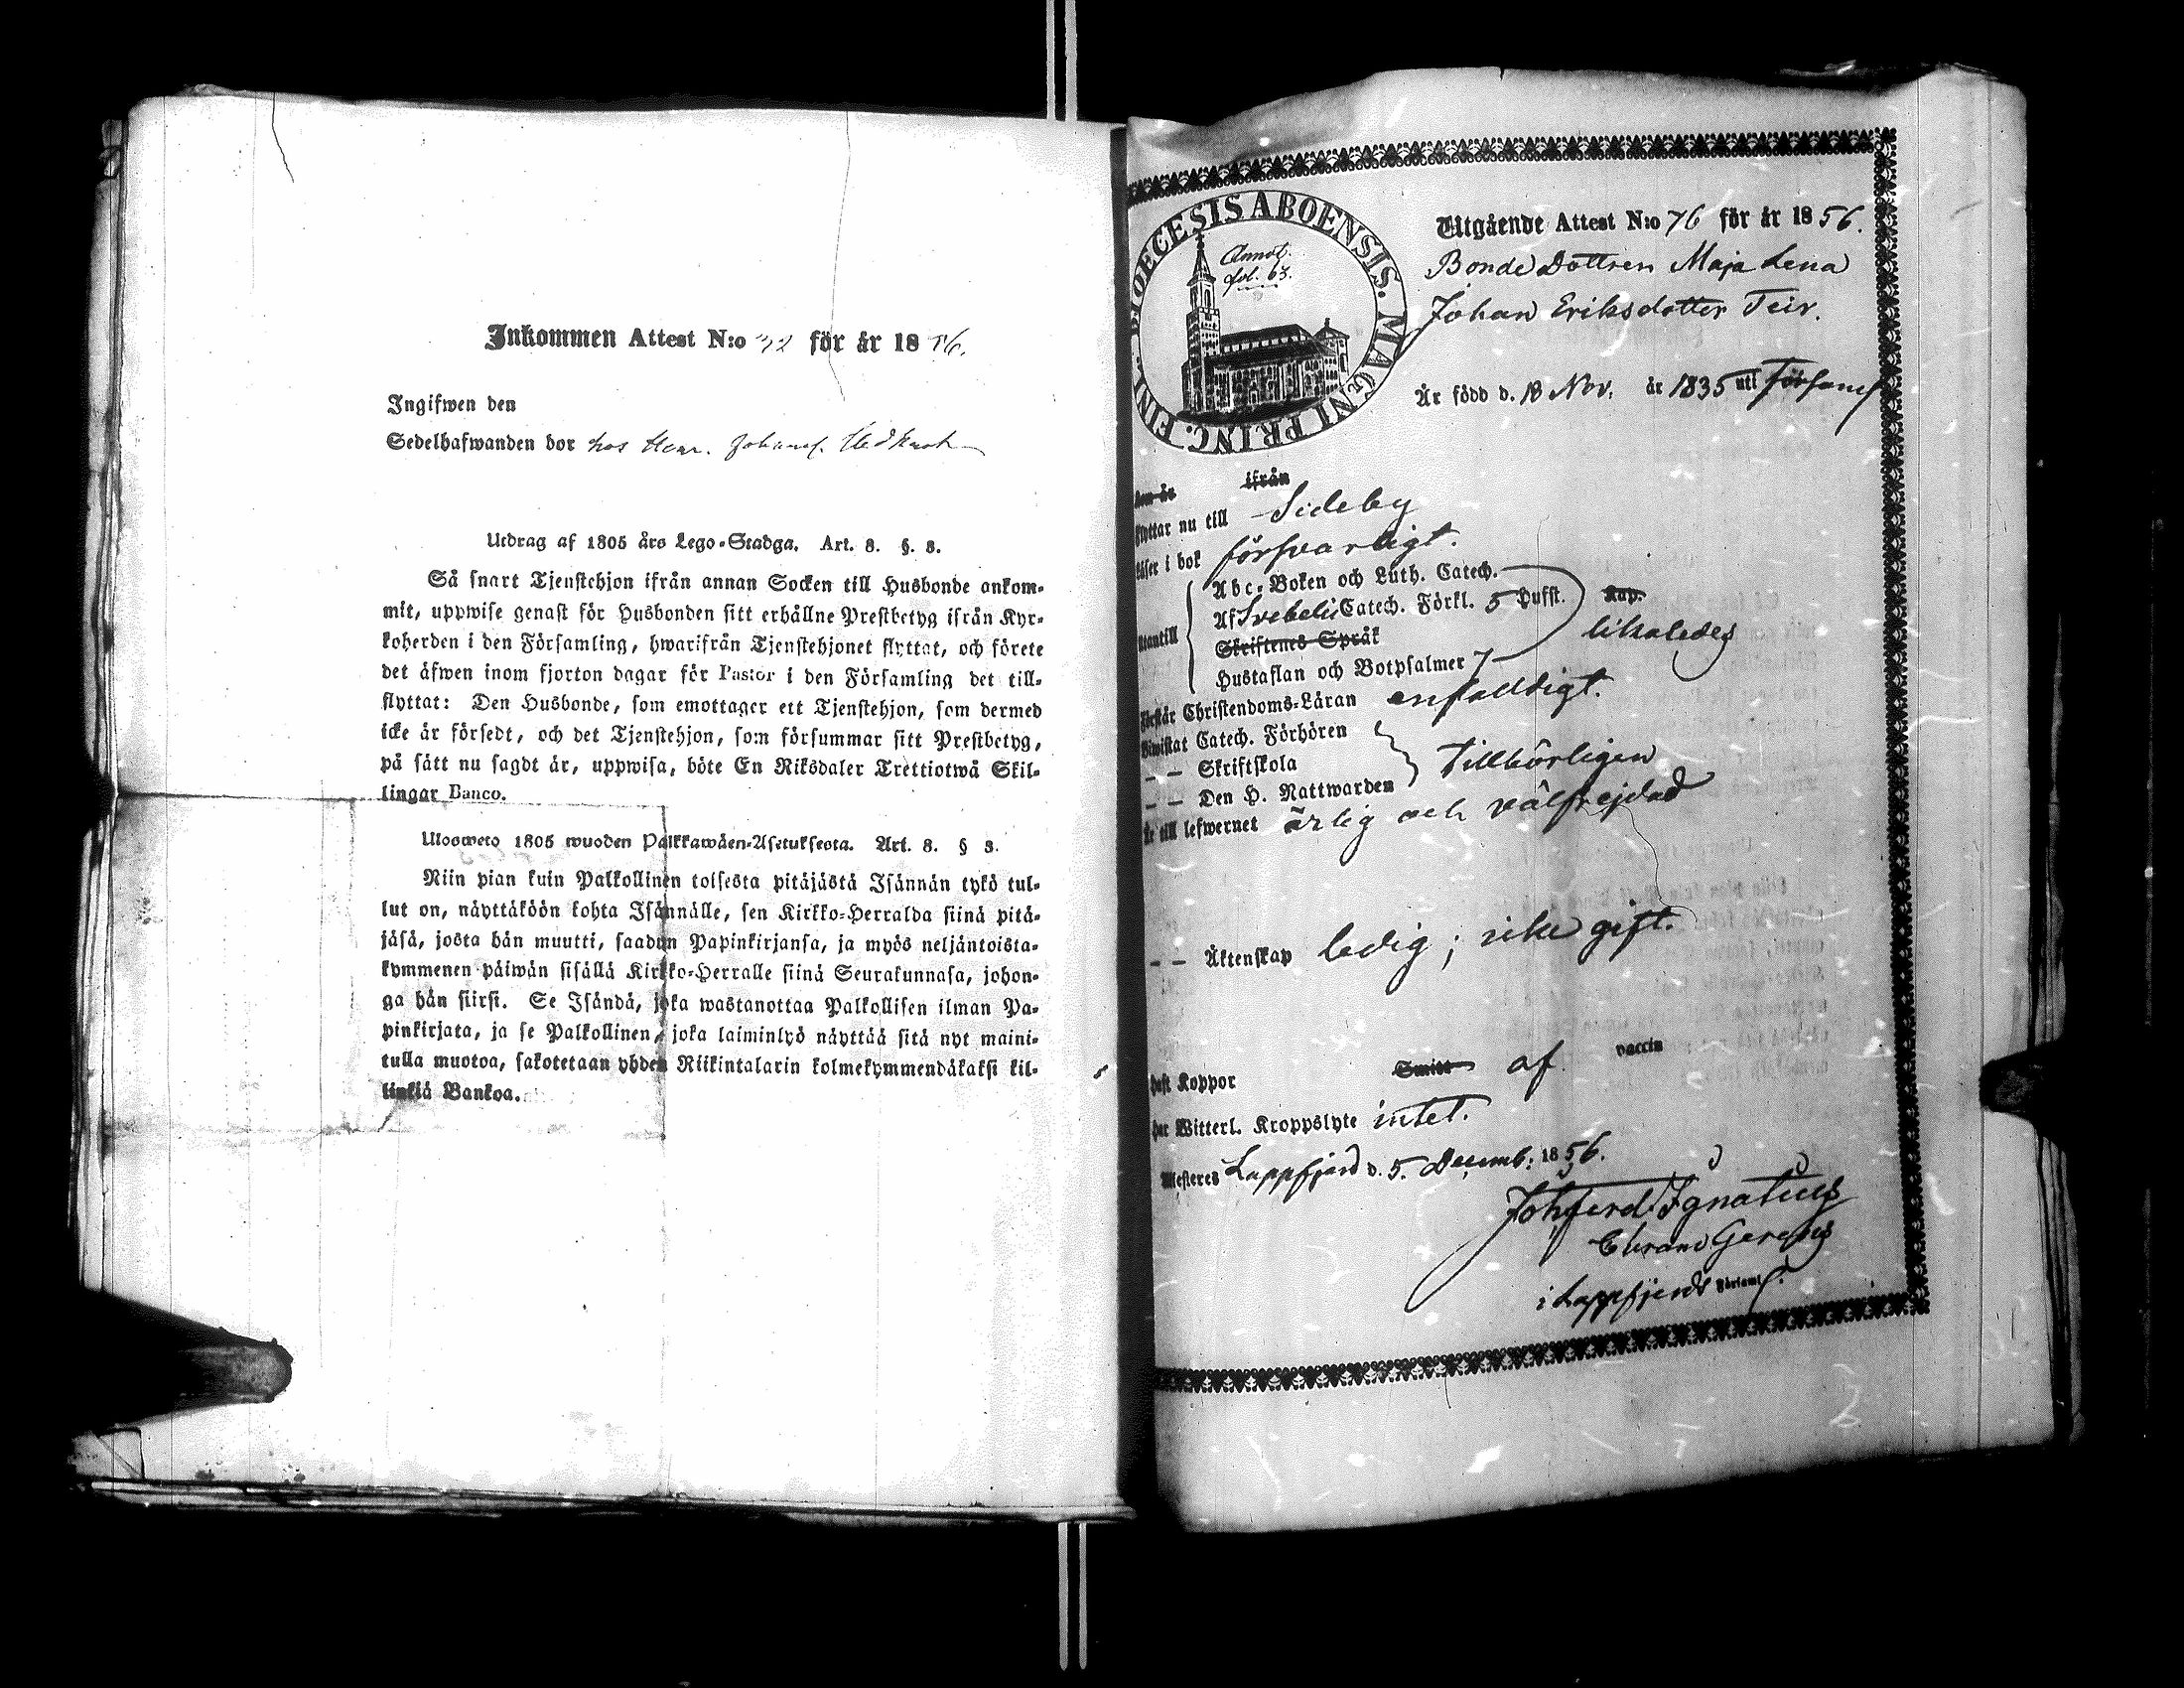 Inkommen Attest N:o 32 för år 1856.
Ingifwen den
Sedelhafwanden bor hos Henr. Johans.
Utdrag af 1805 års Lego-Stadga. Art. 8. §. 3.
Så snart Tjenstehjon ifrån annan Socken till Husbonde ankom-
mit, uppwise genast för Husbonden sitt erhållne Prestbetyg ifrån Kyr-
koherden i den Församling, hwarifrån Tjenstehjonet flyttat, och förete
det äfwen inom fjorton dagar för Pastor i den Församling det till-
flyttat: Den Husbonde, som emottager ett Tjenstehjon, som dermed
icke är försedt, och det Tjenstehjon, som försummar sitt Prestbetyg,
på sätt nu sagdt är, uppwisa, böte En Riksdaler Trettiotwå Skil-
lingar Banco.
Ulosweto 1805 wuoden Palkkawäen-Asetuksesta. Art. 8. § 3.
Niin pian kuin Palkollinen toisesta pitäjästä Isännän tykö tul-
lut on, näyttäköön kohta Isännälle, sen Kirkko-Herralda siinä pitä-
jäsä, josta hän muutti, saadun Papinkirjansa, ja myös neljäntoista-
kymmenen päiwän sisällä Kirkko-Herralle siinä Seurakunnasa, johon-
ga hän siirsi. Se Isändä, joka wastanottaa Palkollisen ilman Pa-
pinkirjata, ja se Palkollinen, joka laiminlyö näyttää sitä nyt maini-
tulla muotoa, sakotetaan yhden Riikintalarin kolmekymmendäkaksi kil-
linkiä Bankoa.
DIOECESIS ABOENSIS. MAGNI PRINC. FINL.
Annot.
fol. 63.
Utgående Attest N:o 76 för år 1856.
Bonde Dottren Maja Lena
Johan Eriksdotter Teir.
Är född d. 18 Nov. år 1835 uti Församl
kom år ifrån
flyttar nu till Sideby
läser i bok försvarligt.
utantill Abc-Boken och Luth. Catech.
Af Svebelii Catech. Förkl. 5 Hufst. Kap.
Skriftenes Språk likaledes
Hustaflan och Botpsalmer 7
förstår Christendoms-Läran enfalldigt.
Biwistat Catech. Förhören
– – Skriftskola Tillbörligen
– – Den H. Nattwarden
Är till lefwernet ärlig och välfrejdad
– – Äktenskap ledig; icke gift.
haft Koppor Smitt af vaccin
har Witterl. Kroppslyte intet.
Attesteres Lappfjerd d. 5. Decemb: 1856.
Joh. Ferd. Ignatius
i Lappfjerds Församl.